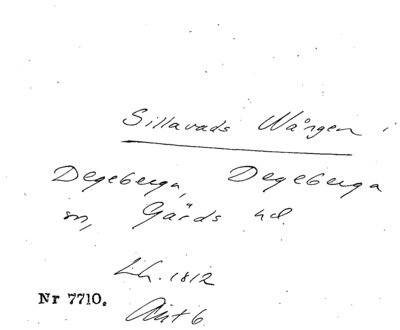 Sillavads Wången i
Degeberga, Degeberga
sn, Gärds hd.
Lh. 1812
Nr 7710.
Akt 6